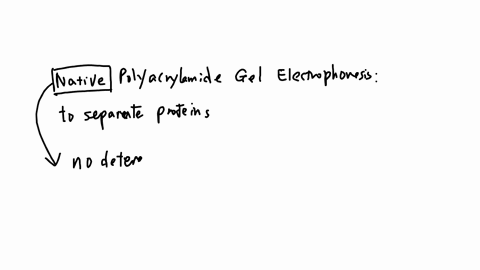 Native Polyacrylamide Gel Electrophoresis:
to separate proteins
no deter